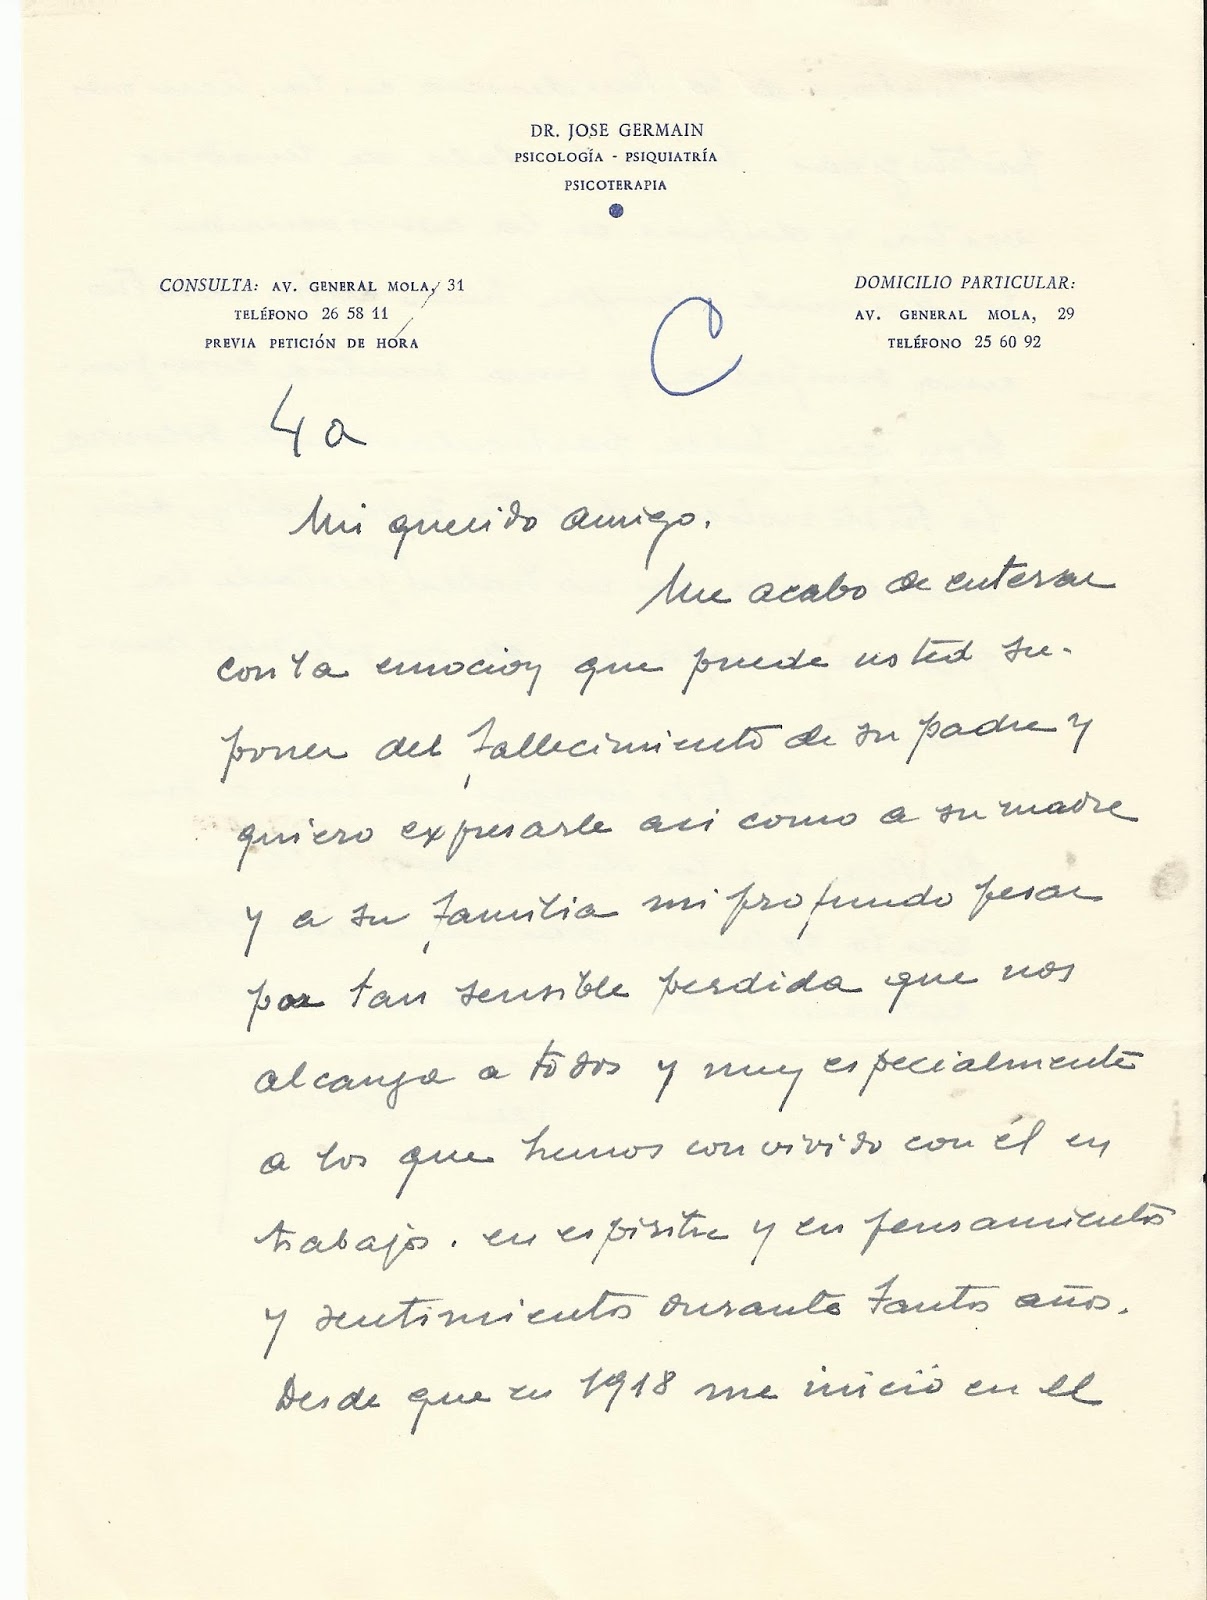 DR. JOSE GERMAIN
PSICOLOGÍA - PSIQUIATRÍA
PSICOTERAPIA
CONSULTA: AV. GENERAL MOLA, 31
TELÉFONO 26 58 11
PREVIA PETICIÓN DE HORA
DOMICILIO PARTICULAR:
AV. GENERAL MOLA, 29
TELÉFONO 25 60 92
C
4 a
Mi querido amigo.
Me acabo de enterar
con la emoción que puede usted su-
poner del fallecimiento de su padre y
quiero expresarle asi como a su madre
y a su familia mi profundo pesar
por tan sensible perdida que nos
alcanza a todos y muy especialmente
a los que hemos convivido con él en
trabajos. en espiritu y en pensamientos
y sentimientos durante tantos años.
Desde que en 1918 me inició en el